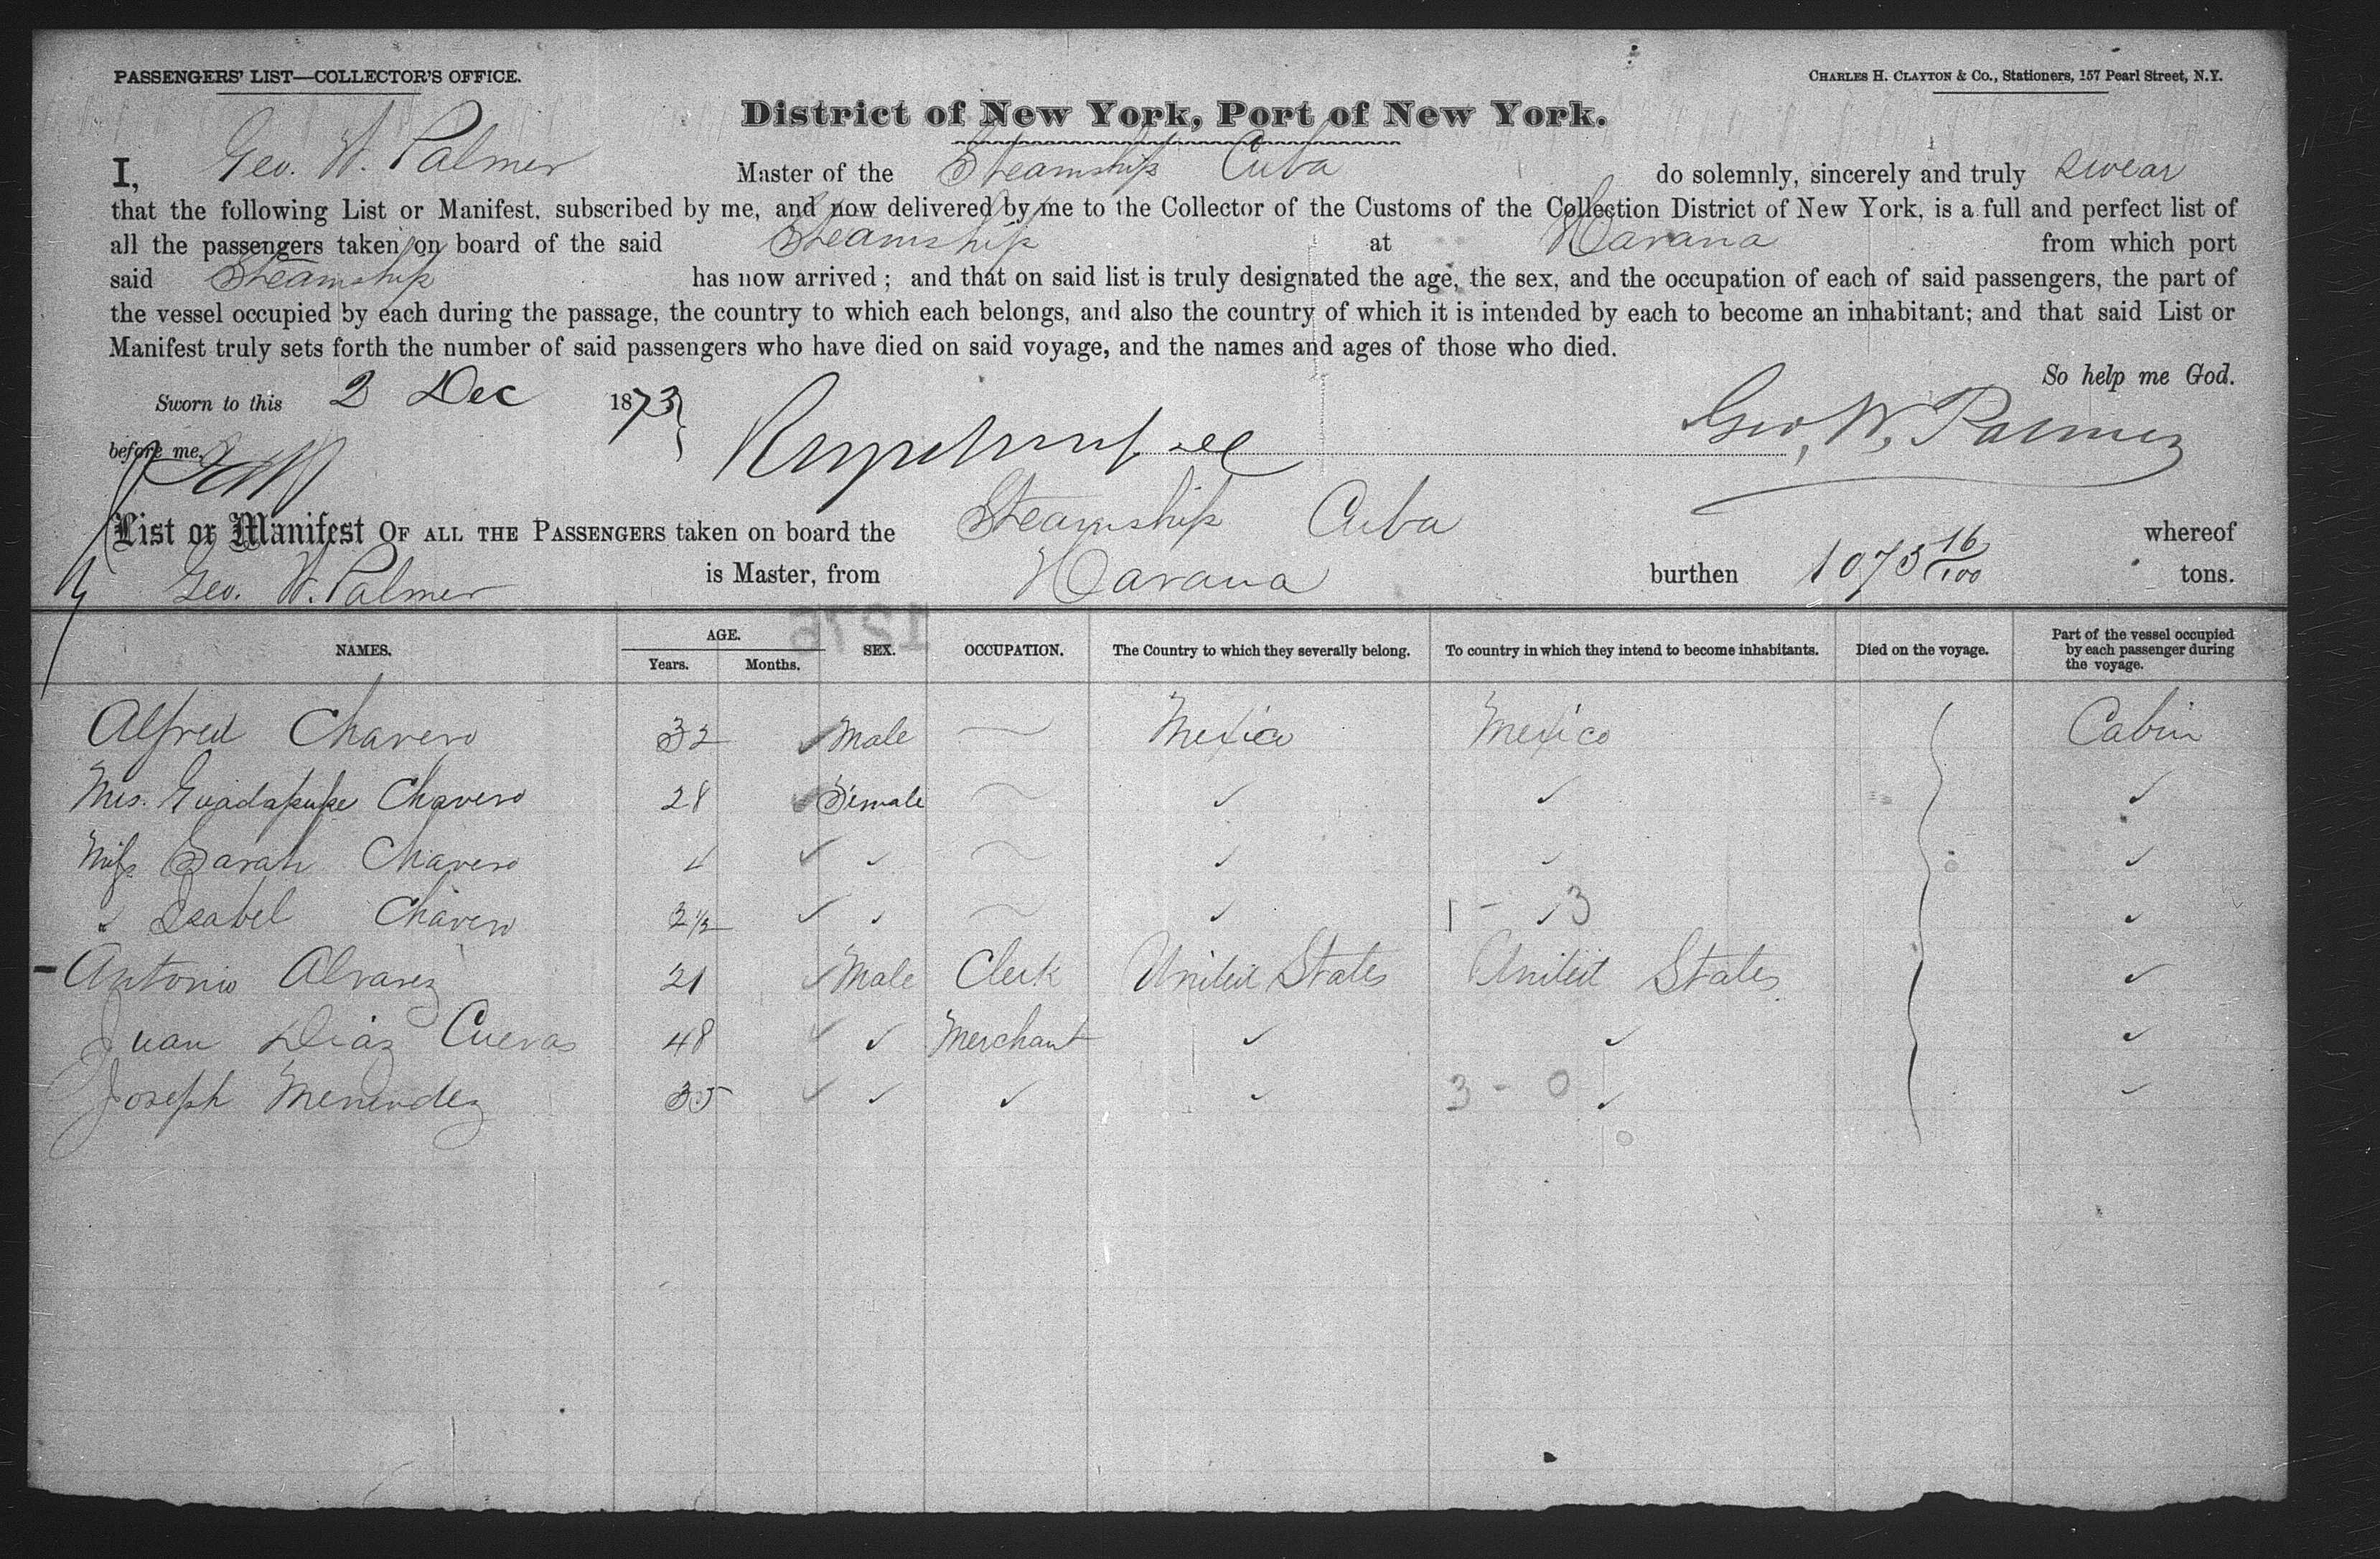 PASSENGERS' LIST—COLLECTOR'S OFFICE.
CHARLES H. CLAYTON & Co., Stationers, 157 Pearl Street, N.Y.
District of New York, Port of New York.
I, Geo. W. Palmer Master of the Steamship Cuba do solemnly, sincerely and truly swear
that the following List or Manifest, subscribed by me, and now delivered by me to the Collector of the Customs of the Collection District of New York, is a full and perfect list of
all the passengers taken on board of the said Steamship at Havana from which port
said Steamship has now arrived; and that on said list is truly designated the age, the sex, and the occupation of each of said passengers, the part of
the vessel occupied by each during the passage, the country to which each belongs, and also the country of which it is intended by each to become an inhabitant; and that said List or
Manifest truly sets forth the number of said passengers who have died on said voyage, and the names and ages of those who died.
So help me God.
Sworn to this 2 Dec 1873
before me, Geo. W. Palmer
List or Manifest OF ALL THE PASSENGERS taken on board the Steamship Cuba whereof
Geo. W. Palmer is Master, from Havana burthen 1073 16/100 tons.
1276
NAMES. AGE. Years. Months. SEX. OCCUPATION. The Country to which they severally belong. To country in which they intend to become inhabitants. Died on the voyage. Part of the vessel occupied by each passenger during the voyage.
Alfred Chavero 32 ✓ Male — Mexico Mexico Cabin
Mrs. Guadalupe Chavero 28 ✓ Female — ✓ ✓ ✓
Miss Sarah Chavero 4 ✓ ✓ — ✓ ✓ ✓
" Isabel Chavero 2½ ✓ ✓ — ✓ 1 - ✓ 3 ✓
- Antonio Alvarez 21 ✓ Male Clerk United States United States ✓
Juan Diaz Cuevas 48 ✓ ✓ Merchant ✓ ✓ ✓
Joseph Menendez 35 ✓ ✓ ✓ ✓ 3 - 0 ✓ ✓